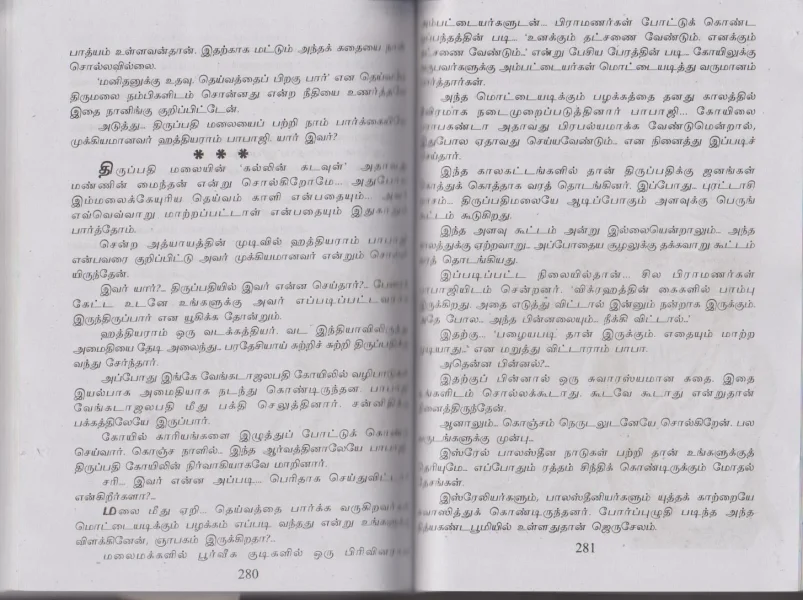 பாத்யம் உள்ளவன்தான். இதற்காக மட்டும் அந்தக் கதையை நான்
சொல்லவில்லை.
'மனிதனுக்கு உதவு. தெய்வத்தைப் பிறகு பார்' என
திருமலை நம்பிகளிடம் சொன்னது என்ற நீதியை உணர்த்தவே
இதை நானிங்கு குறிப்பிட்டேன்.
அடுத்து.. திருப்பதி மலையைப் பற்றி நாம் பார்க்கையில்
முக்கியமானவர் ஹத்தியராம் பாபாஜி. யார் இவர்?
* * *
திருப்பதி மலையின் 'கல்லின் கடவுள்' அதாவது
மண்ணின் மைந்தன் என்று சொல்கிறோமே... அதுபோல
இம்மலைக்கேயுரிய தெய்வம் காளி என்பதையும்... அவர்
எவ்வெவ்வாறு மாற்றப்பட்டாள் என்பதையும் இதுகாறும்
பார்த்தோம்.
சென்ற அத்யாயத்தின் முடிவில் ஹத்தியராம் பாபாஜி
என்பவரை குறிப்பிட்டு அவர் முக்கியமானவர் என்றும் சொல்லி
யிருந்தேன்.
இவர் யார்?.. திருப்பதியில் இவர் என்ன செய்தார்?..
கேட்ட உடனே உங்களுக்கு அவர் எப்படிப்பட்டவராக
இருந்திருப்பார் என யூகிக்க தோன்றும்.
ஹத்தியராம் ஒரு வடக்கத்தியர். வட இந்தியாவிலிருந்து
அமைதியை தேடி அலைந்து.. பரதேசியாய் சுற்றிச் சுற்றி திருப்பதிக்கு
வந்து சேர்ந்தார்.
அப்போது இங்கே வேங்கடாஜலபதி கோயிலில் வழிபாடுகள்
இயல்பாக அமைதியாக நடந்து கொண்டிருந்தன. பாபாஜி
வேங்கடாஜலபதி மீது பக்தி செலுத்தினார். சன்னிதி
பக்கத்திலேயே இருப்பார்.
கோயில் காரியங்களை இழுத்துப் போட்டுக் கொண்டு
செய்வார். கொஞ்ச நாளில்.. இந்த ஆர்வத்தினாலேயே பாபாஜி
திருப்பதி கோயிலின் நிர்வாகியாகவே மாறினார்.
சரி.. இவர் என்ன அப்படி.... பெரிதாக செய்துவிட்டார்
என்கிறீர்களா?..
மலை மீது ஏறி... தெய்வத்தை பார்க்க வருகிறவர்கள்
மொட்டையடிக்கும் பழக்கம் எப்படி வந்தது என்று உங்களுக்கு
விளக்கினேன், ஞாபகம் இருக்கிறதா?..
மலைமக்களில் பூர்வீக குடிகளில் ஒரு பிரிவினரான
280
அம்பட்டையர்களுடன்... பிராமணர்கள் போட்டுக் கொண்ட
ஒப்பந்தத்தின் படி... 'உனக்கும் தட்சணை வேண்டும். எனக்கும்
தட்சணை வேண்டும்..' என்று பேசிய பேரத்தின் படி... கோயிலுக்கு
வருபவர்களுக்கு அம்பட்டையர்கள் மொட்டையடித்து வருமானம்
பார்த்தார்கள்.
அந்த மொட்டையடிக்கும் பழக்கத்தை தனது காலத்தில்
தீவிரமாக நடைமுறைப்படுத்தினார் பாபாஜி... கோயிலை
பராபகண்டா அதாவது பிரபல்யமாக்க வேண்டுமென்றால்,
இதுபோல ஏதாவது செய்யவேண்டும்.. என நினைத்து இப்படிச்
செய்தார்.
இந்த காலகட்டங்களில் தான் திருப்பதிக்கு ஜனங்கள்
கொத்துக் கொத்தாக வரத் தொடங்கினர். இப்போது.. புரட்டாசி
மாசம்.. திருப்பதிமலையே ஆடிப்போகும் அளவுக்கு பெருங்
கூட்டம் கூடுகிறது.
இந்த அளவு கூட்டம் அன்று இல்லையென்றாலும்.. அந்த
காலத்துக்கு ஏற்றவாறு.. அப்போதைய சூழலுக்கு தக்கவாறு கூட்டம்
வரத் தொடங்கியது.
இப்படிப்பட்ட நிலையில்தான்... சில பிராமணர்கள்
பாபாஜியிடம் சென்றனர். 'விக்ரஹத்தின் கைகளில் பாம்பு
இருக்கிறது. அதை எடுத்து விட்டால் இன்னும் நன்றாக இருக்கும்.
அதே போல.. அந்த பின்னலையும்.. நீக்கி விட்டால்..'
இதற்கு... 'பழையபடி தான் இருக்கும். எதையும் மாற்ற
முடியாது..' என மறுத்து விட்டாராம் பாபா.
அதென்ன பின்னல்?..
இதற்குப் பின்னால் ஒரு சுவாரஸ்யமான கதை. இதை
உங்களிடம் சொல்லக்கூடாது. கூடவே கூடாது என்றுதான்
நினைத்திருந்தேன்.
ஆனாலும்.. கொஞ்சம் நெருடலுடனேயே சொல்கிறேன். பல
வருடங்களுக்கு முன்பு..
இஸ்ரேல் பாலஸ்தீன நாடுகள் பற்றி தான் உங்களுக்குத்
தெரியுமே.. எப்போதும் ரத்தம் சிந்திக் கொண்டிருக்கும் மோதல்
தேசங்கள்.
இஸ்ரேலியர்களும், பாலஸ்தீனியர்களும் யுத்தக் காற்றையே
சுவாஸித்துக் கொண்டிருந்தனர். போர்ப்புழுதி படிந்த அந்த
நித்யகண்டபூமியில் உள்ளதுதான் ஜெருசேலம்.
281